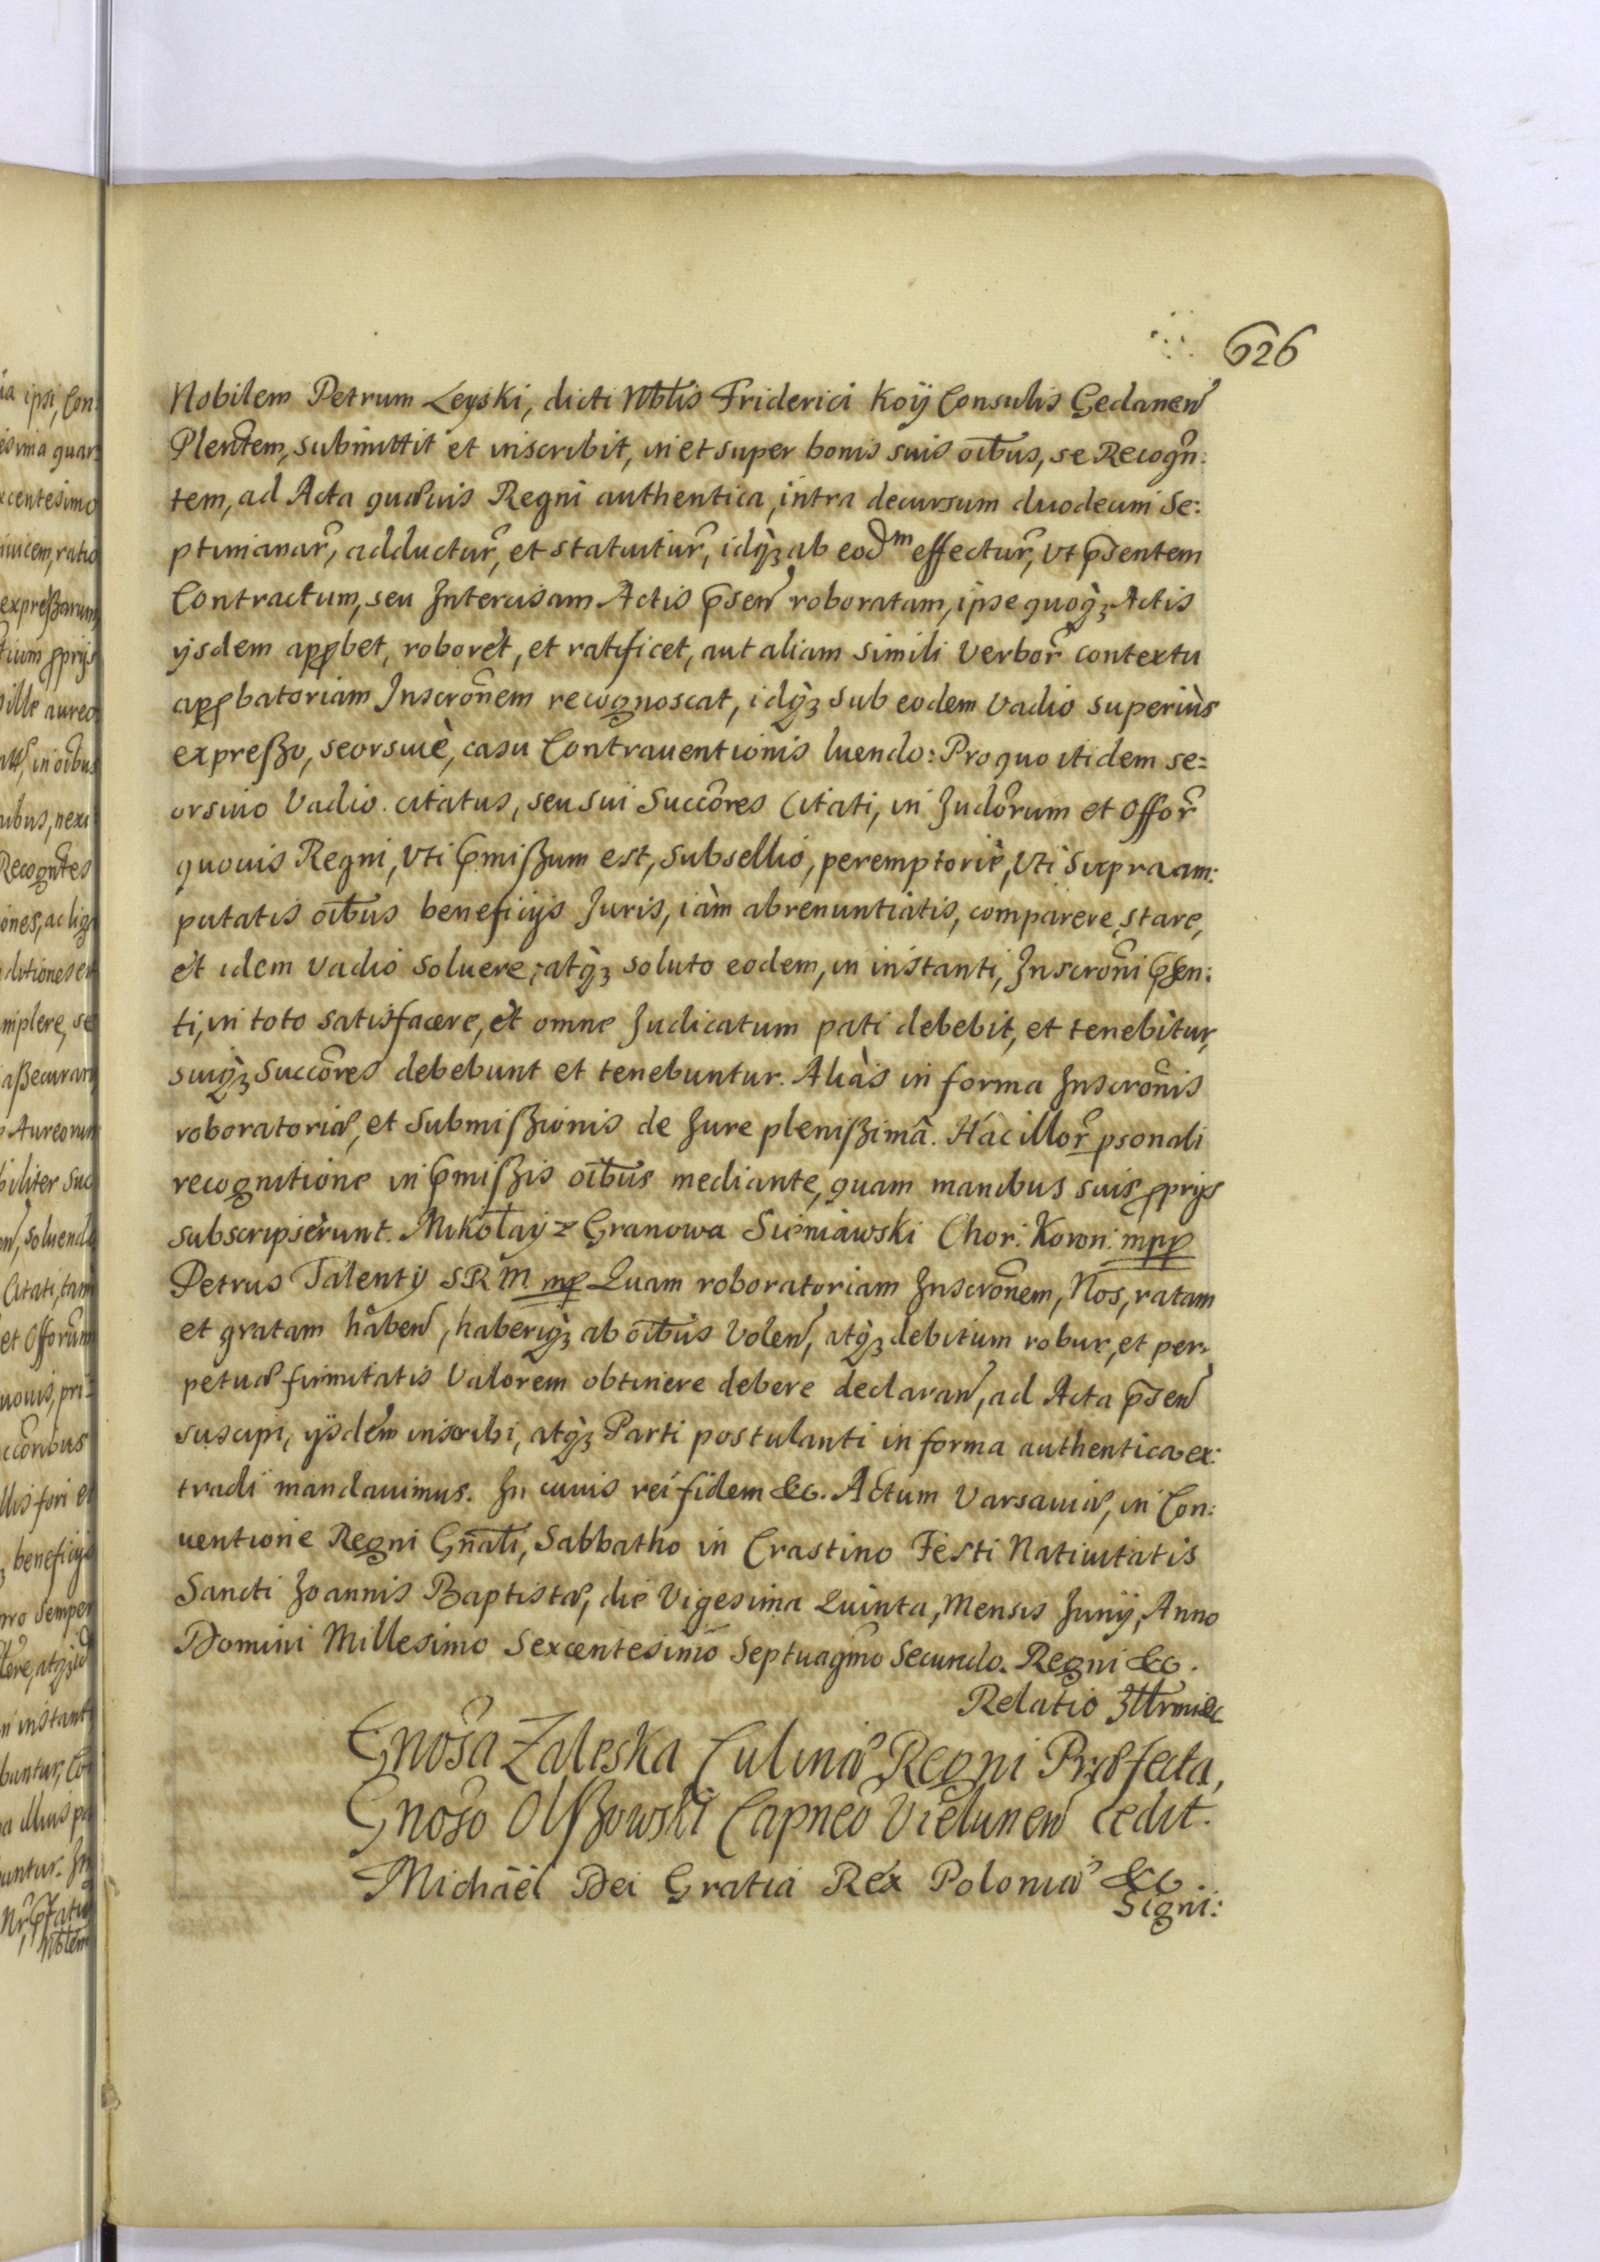 626
Nobilem Petrum Leyski, dicti Nbtis Friderici Koÿ Consulis Gedanen
Plentem, submittit et inscribit, in et super bonis suis oibus, se Recogn:
tem, ad Acta quævis Regni authentica, intra decursum duodecim Se:
ptimanar, adductur, et statuitur, idqꝫ ab eodm effectur, Vt psentem
Contractum, seu Intercisam Actis psen roboratam, ipse quoqꝫ Actis
ijsdem appbet, roboret, et ratificet, aut aliam simili Verbor contextu
appbatoriam Inscronem recognoscat, idqꝫ sub eodem Vadio superiùs
expreßo, seorsivè, casu Contrauentionis luendo: Pro quo itidem se=
orsivo Vadio citatus, seu sui Succores Citati, in Judorum et Offor
quouis Regni, Vti pmißum est, Subsellio, peremptoriè, Vti Supra am:
putatis oibus beneficijs Juris, iàm abrenuntiatis, comparere, stare,
et idem Vadio soluere, atqꝫ soluto eodem, in instanti, Inscroni psen:
ti, in toto satisfacere, et omne Judicatum pati debebit, et tenebitur,
suiqꝫ Succores debebunt et tenebuntur. Aliàs in forma Inscronis
roboratoriæ, et Submißionis de Jure plenißimâ. Hàc illor psonali
recognitione in pmißis oibus mediante, quam manibus suis pprijs
subscripserunt. Mikołaÿ z Granowa Sieniawski Chor: Koron: mpp
Petrus Talentÿ S.R.M. mp Quam roboratoriam Inscronem, Nos, ratam
et gratam haben, haberiqꝫ ab oibus Volen, atqꝫ debitum robur, et per=
petuæ firmitatis Valorem obtinere debere declaran, ad Acta psen
suscipi, ijsdem inscribi, atqꝫ Parti postulanti in forma authentica ex:
tradi mandauimus. In cuius rei fidem &c. Actum Varsauiæ, in Con:
uentione Regni Gnali, Sabbatho in Crastino Festi Natiuitatis
Sancti Joannis Baptistæ, die Vigesima Quinta, Mensis Junÿ, Anno
Domini Millesimo Sexcentesimo Septuagmo Secundo. Regni &c.
Relatio
Gnosa Zaleska Culinæ Regni Præfecta,
Gnoso Olßowski Capneo Vielunen cedit.
Michaël Dei Gratia Rex Poloniæ &c.
Signi: